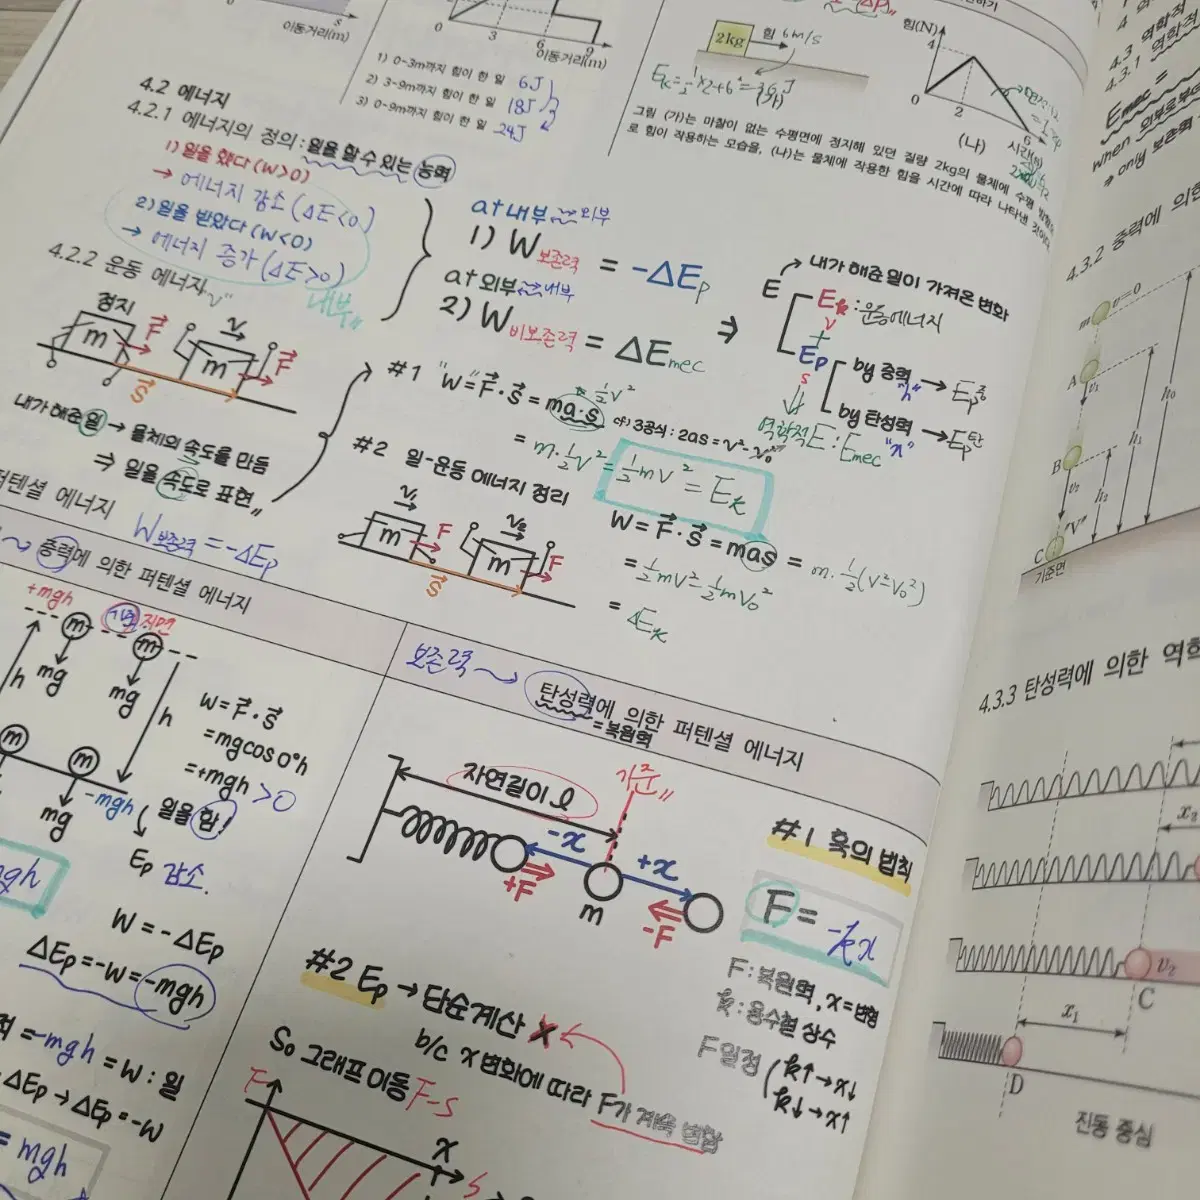 이동거리(m)
0 3 6 9
이동거리(m)
1) 0~3m까지 힘이 한 일 6J
2) 3~9m까지 힘이 한 일 18J
3) 0~9m까지 힘이 한 일 24J
2kg 힘 6m/s
(가)
힘(N)
4
0 2 6
시간(s)
(나)
그림 (가)는 마찰이 없는 수평면에 정지해 있던 질량 2kg의 물체에 수평
로 힘이 작용하는 모습을, (나)는 물체에 작용한 힘을 시간에 따라 나타낸 것이다
4.2 에너지
4.2.1 에너지의 정의 : 일을 할 수 있는 능력
1) 일을 했다 (W>0)
→ 에너지 감소 (ΔE<0)
2) 일을 받았다 (W<0)
→ 에너지 증가 (ΔE>0)
내부
at 내부 외부
1) W보존력 = -ΔEp
at 외부 내부
2) W비보존력 = ΔEmec
⇒
내가 해준 일이 가져온 변화
E
Ek : 운동에너지
v
+
Ep
s
by 중력 "h" → Ep중
by 탄성력 "x" → Ep탄
역학적E : Emec
4.2.2 운동 에너지 "v"
정지 m F v m F
S
내가 해준 일 → 물체의 속도를 만듦
⇒ 일을 속도로 표현
#1 "W" = F·S = ma·s
½v²
3공식 : 2as = v²-v₀²
= m·½v² = ½mv² = Ek
#2 일-운동 에너지 정리
v₁ m F v₂ m F
S
W = F·S = mas = m·½(v²-v₀²)
= ½mv²-½mv₀²
= ΔEk
텐셜 에너지 W보존력 = -ΔEp
중력에 의한 퍼텐셜 에너지
+mgh 기준 지면
m m
h mg mg h
m m
mg -mgh
W = F·S
= mgcos0°h
= +mgh >0
일을 함!
Ep 감소.
W = -ΔEp
ΔEp = -W = -mgh
= -mgh = W : 일
ΔEp → ΔEp = -W
= mgh
보존력
탄성력에 의한 퍼텐셜 에너지
= 복원력
자연길이 l
기준
-x +x
+F m -F
#1 훅의 법칙
F = -kx
F : 복원력, x = 변형
k : 용수철 상수
F 일정 (k↑→x↓
k↓→x↑
#2 Ep → 단순계산 X
b/c x 변화에 따라 F가 계속 변함
So 그래프 이동 F-s
F
x
s
4.3 역학적
4.3.1 역학적
Emec =
when 외부로부터
⇒ only 보존력
4.3.2 중력에 의한
m v=0
A v₁
B v₂
C "V"
h₀ h₁ h₂
기준면
4.3.3 탄성력에 의한 역학
x₂
v₂
C
x₁
D
진동 중심